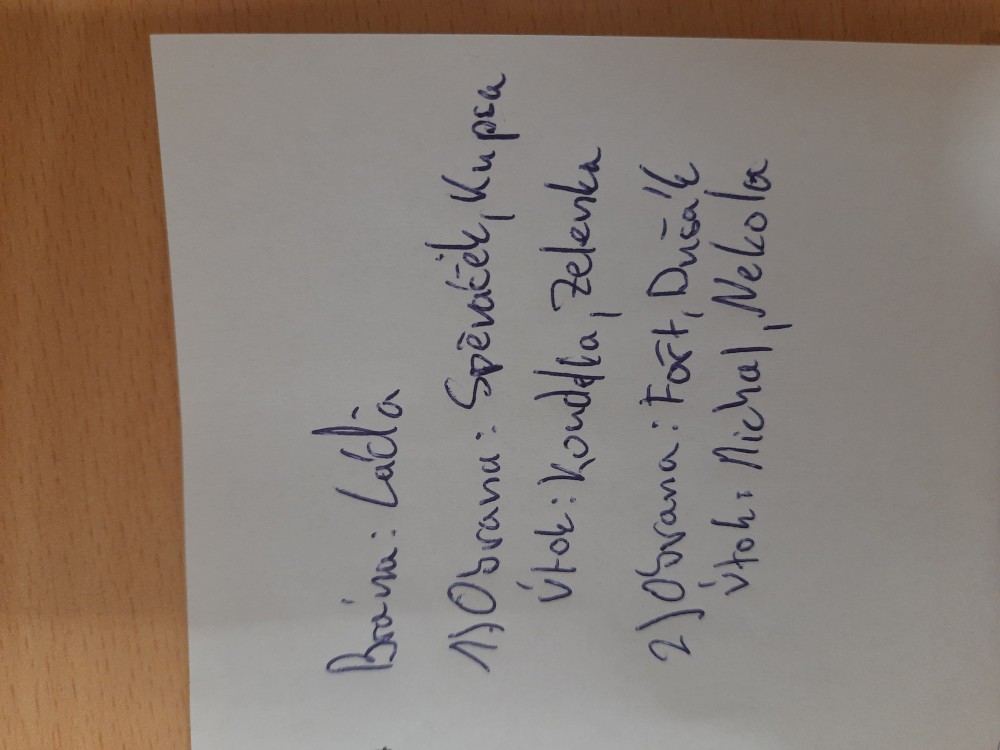 Brána: Láďa
1) Obrana: Spěváček, Kupsa
Útok: Koudelka, Zelenka
2) Obrana: Fořt, Dušák
Útok: Michal, Nekola